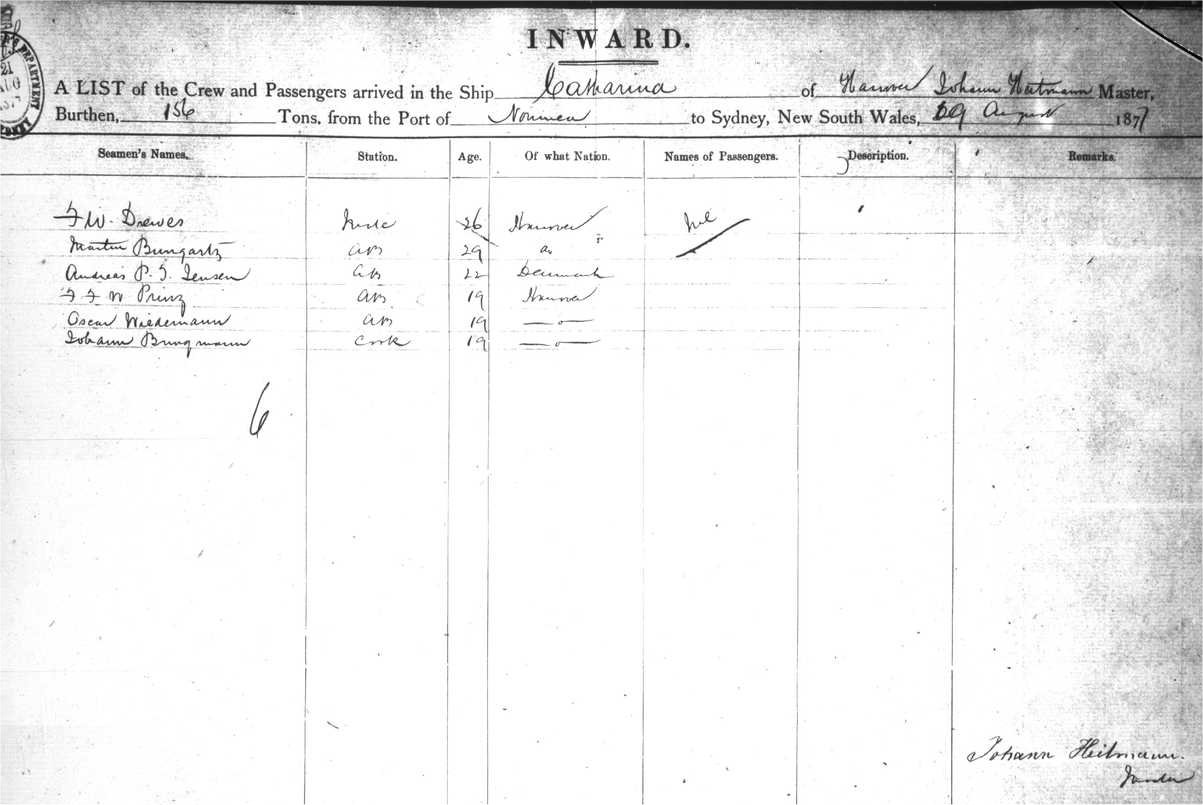 INWARD.
A LIST of the Crew and Passengers arrived in the Ship Catharina of Hanover Johann Heitmann Master,
Burthen, 156 Tons, from the Port of Noumea to Sydney, New South Wales, August 1877
Seamen's Names. Station. Age. Of what Nation. Names of Passengers. Description. Remarks.
F W. Drewes Mate 26 Hanover Nil
Martin Bungartz AB 29 do
Andreas P. J. Jensen AB 22 Denmark
F F W Prinz AB 19 Hanover
Oscar Wiedemann AB 19 — o —
Johann Brungmann Cook 19 — o —
6
Johann Heitmann.
Master